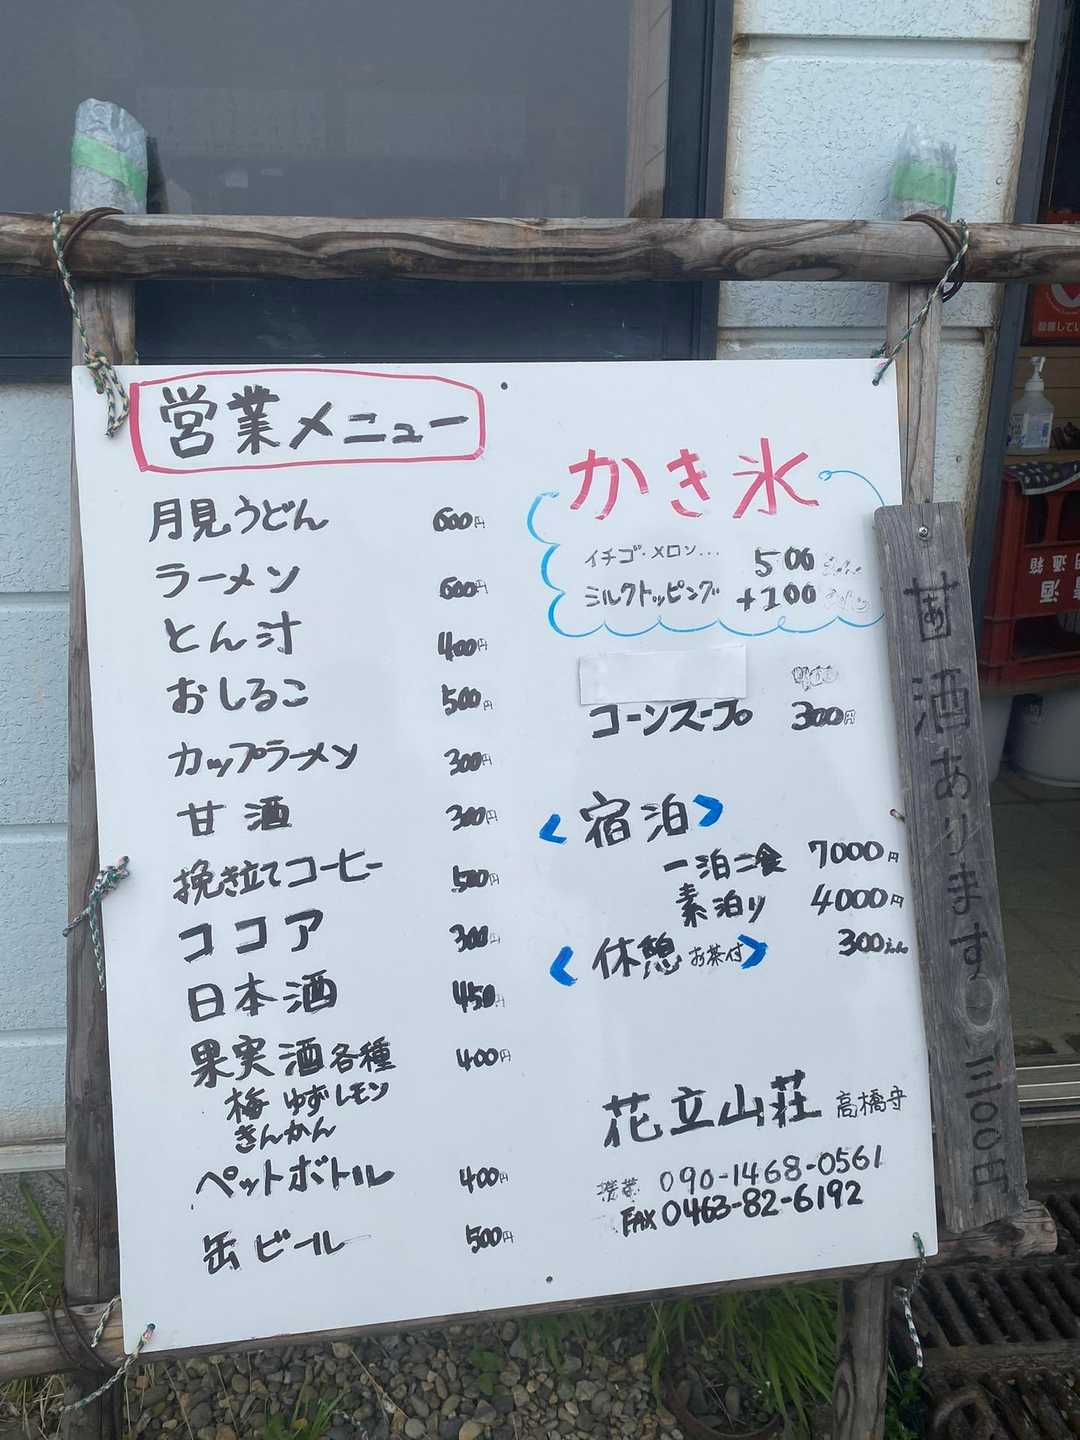 営業メニュー
月見うどん 600円
ラーメン 600円
とん汁 400円
おしるこ 500円
カップラーメン 300円
甘酒 300円
挽き立てコーヒー 500円
ココア 300円
日本酒 450円
果実酒各種 400円
梅 ゆず レモン
きんかん
ペットボトル 400円
缶ビール 500円
かき氷
イチゴ・メロン... 500
ミルクトッピング +100
コーンスープ 300円
<宿泊>
一泊二食 7000円
素泊り 4000円
<休憩 お茶付> 300えん
花立山荘 高橋守
携帯 090-1468-0561
FAX 0463-82-6192
甘酒あります〇三〇〇円